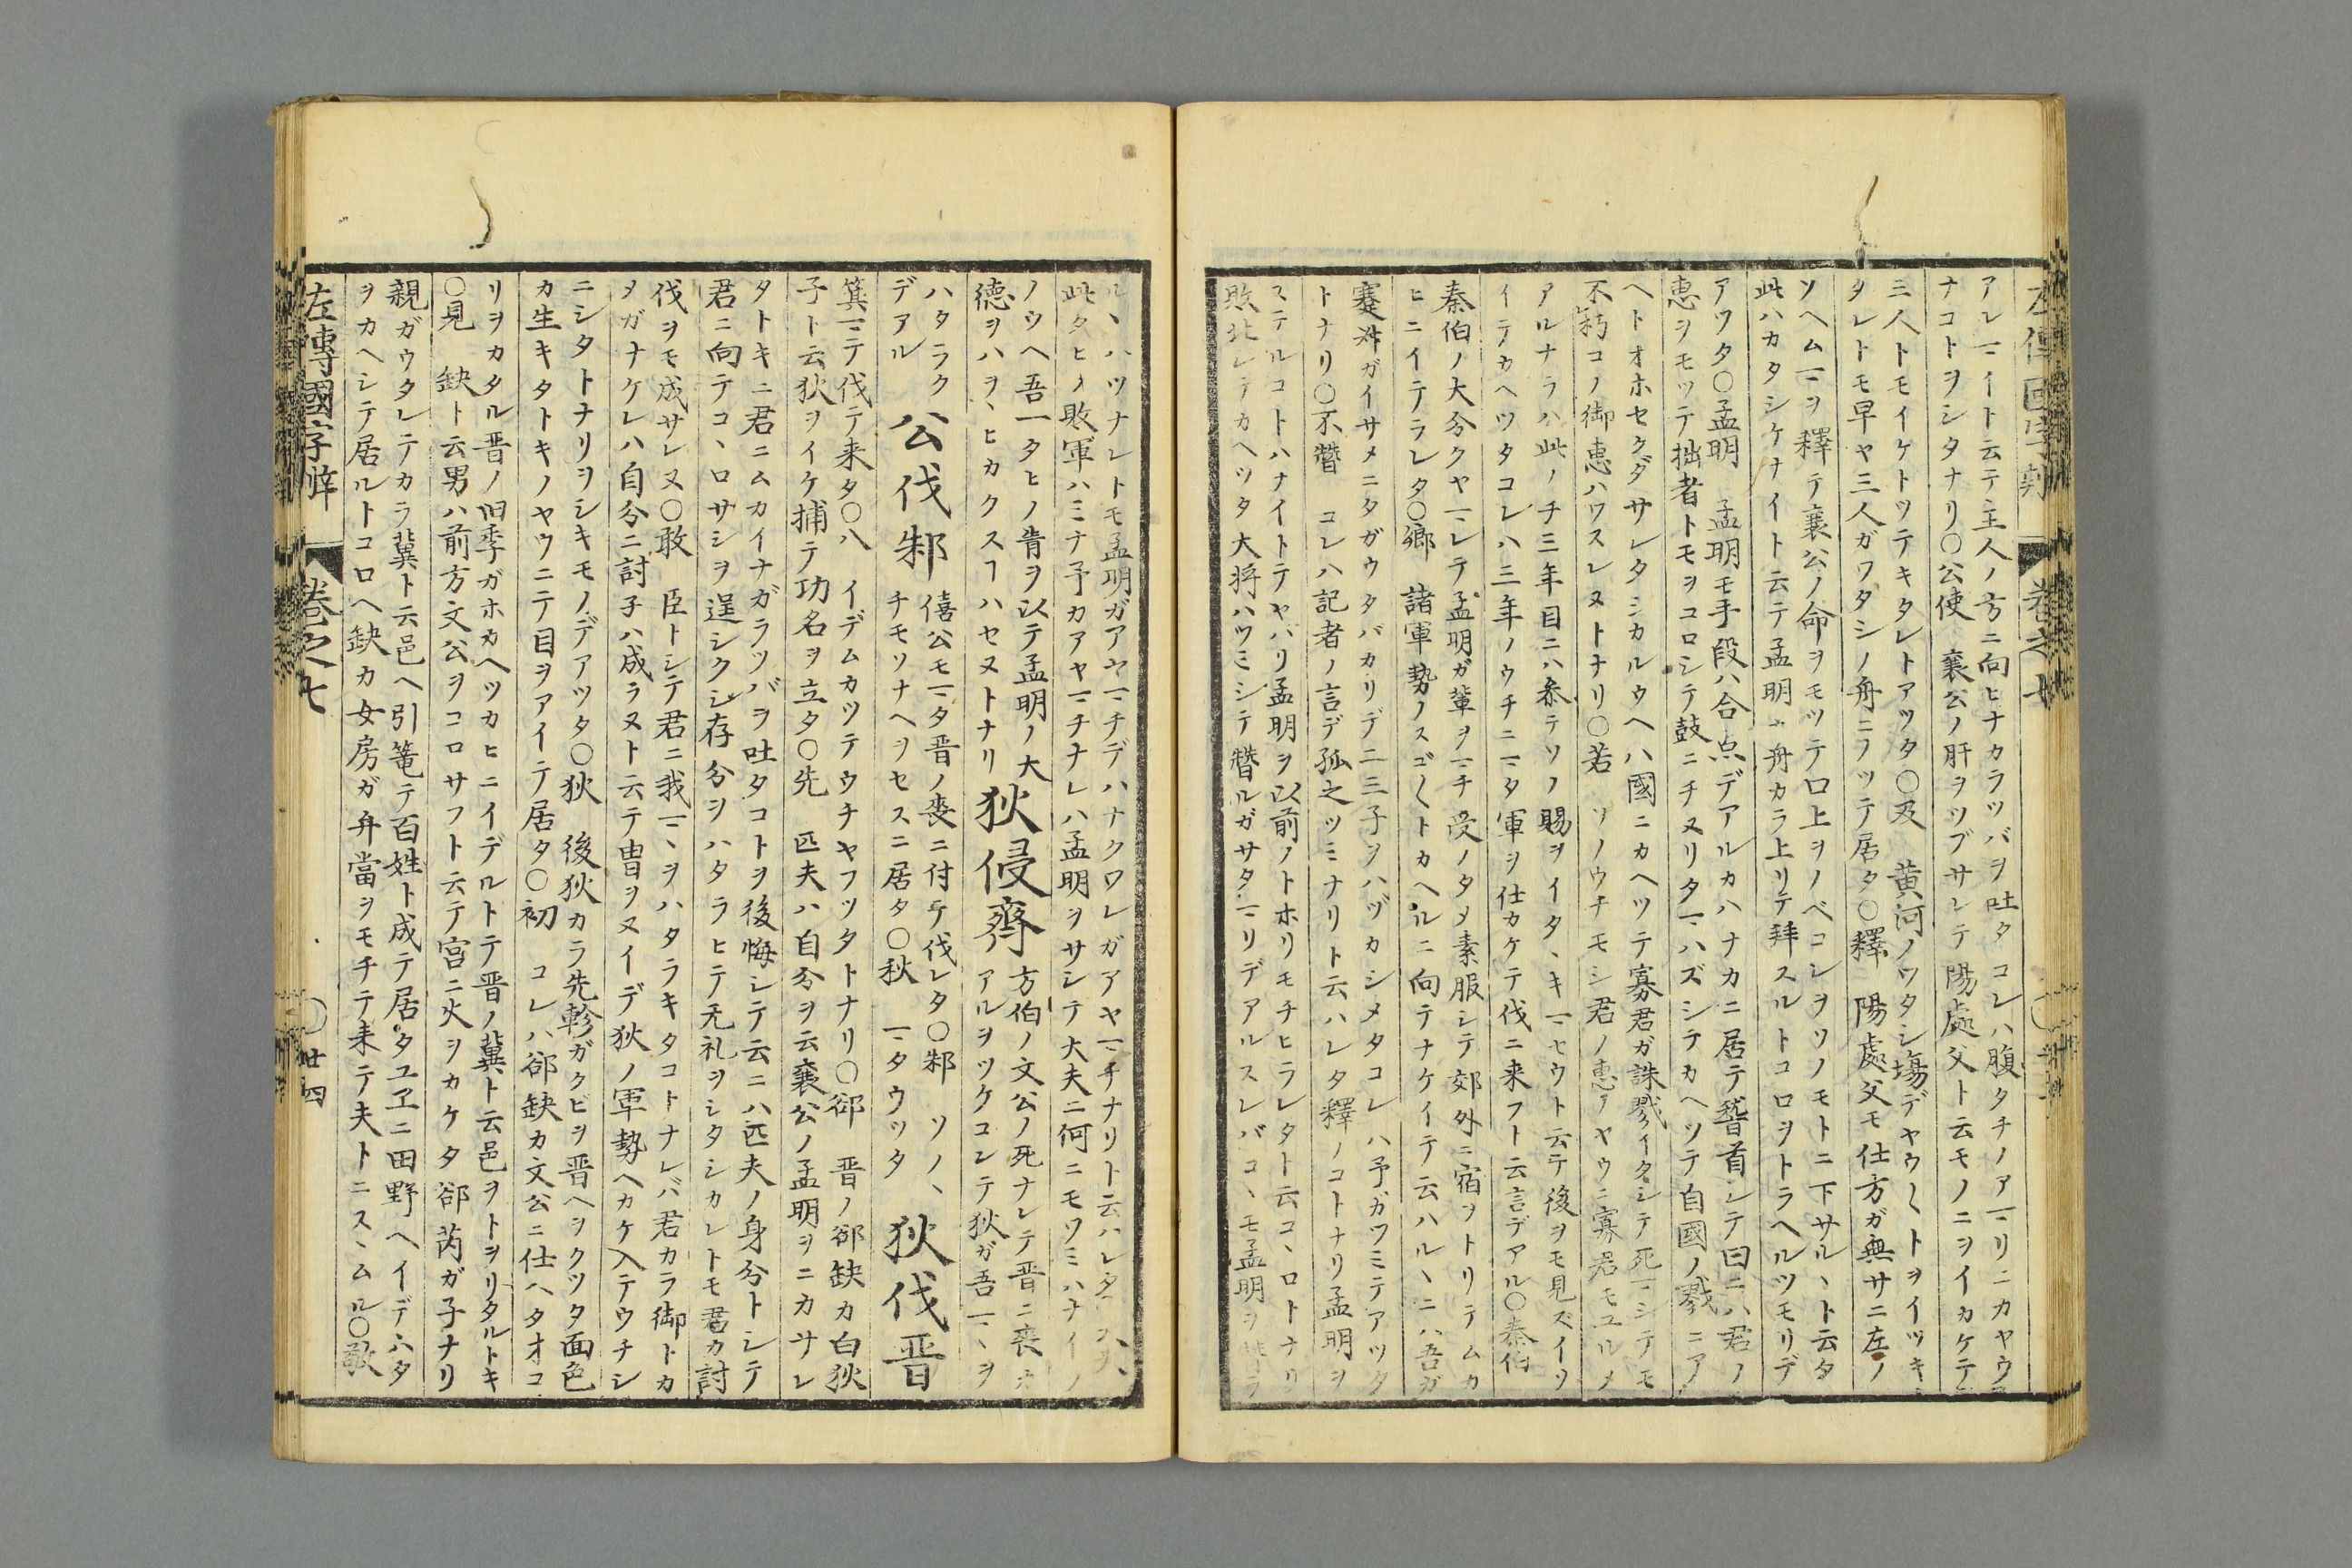 左傳國字辯 卷之七
アレマイト云テ主人ノ方ニ向ヒナカラツバヲ吐タコレハ腹タチノアマリニカヤウ
ナコトヲシタナリ〇公使 襄公ノ肝ヲツブサレテ陽處父ト云モノニヲイカケテ
三人トモイケトツテキタレトアツタ〇及 黄河ノワタシ塲デヤウ〱トヲイツキ
タレトモ早ヤ三人ガワタシノ舟ニノツテ居タ〇釋 陽處父モ仕方ガ無サニ左ノ
ソヘムマヲ釋テ襄公ノ命ヲモツテ口上ヲノベコレヲソノモトニ下サルヽト云タ
此ハカタシケナイト云テ孟明ヲ舟カラ上リテ拜スルトコロヲトラヘルツモリデ
アツタ〇孟明 孟明モ手段ハ合点デアルカハナカニ居テ𥡴首シテ曰ニハ君ノ
恵ヲモツテ拙者トモヲコロシテ鼓ニチヌリタマハズシテカヘツテ自國ノ戮ニア
ヘトオホセクダサレタシカルウヘハ國ニカヘツテ寡君ガ誅戮イタシテ死マシテモ
不朽コノ御恵ハワスレヌトナリ〇若 ソノウチモシ君ノ恵デヤウニ寡君モユルメ
アルナラハ此ノチ三年目ニハ参テソノ賜ヲイタヽキマセウト云テ後ヲモ見ズイソ
イテカヘツタコレハ三年ノウチニマタ軍ヲ仕カケテ伐ニ来フト云言デアル〇秦伯
秦伯ノ大分クヤマレテ孟明ガ輩ヲマチ受ノタメ素服シテ郊外ニ宿ヲトリテムカ
ヒニイテラレタ〇郷 諸軍勢ノスゴ〱トカヘルニ向テナケイテ云ハルヽニハ吾ガ
蹇叔ガイサメニタガウタバカリデ二三子ヲハヅカシメタコレハ予ガツミテアツタ
トナリ〇不替 コレハ記者ノ言デ孤之ツミナリト云ハレタ釋ノコトナリ孟明ヲ
ステルコトハナイトテヤハリ孟明ヲ以前ノトホリモチヒラレタト云コヽロトナリ
敗北シテカヘツタ大将ハツミシテ替ルガサタマリデアルスレバコヽモ孟明ヲ
ルヽハツナレトモ孟明ガアヤマチデハナクワレガアヤマチナリト云ハレタ
此タヒノ敗軍ハミナ予カアヤマチナレハ孟明ヲサシテ大夫ニ何ニモツミハナイ
ノウヘ吾一タヒノ眚ヲ以テ孟明ノ大
德ヲハヲヽヒカクスヿハセヌトナリ
狄侵齊
方伯ノ文公ノ死ナレテ晋ニ喪
アルヲツケコンテ狄ガ吾マヽヲ
ハタラク
デアル
公伐邾
僖公モマタ晋ノ喪ニ付テ伐レタ〇邾 ソノヽ
チモソナヘヲセスニ居タ〇秋 マタウツタ
狄伐晋
箕マテ伐テ来タ〇八 イデムカツテウチヤフツタトナリ〇郤 晋ノ郤缺カ白狄
子ト云狄ヲイケ捕テ功名ヲ立タ〇先 匹夫ハ自分ヲ云襄公ノ孟明ヲニカサレ
タトキニ君ニムカイナガラツバヲ吐タコトヲ後悔シテ云ニハ匹夫ノ身分トシテ
君ニ向テコヽロサシヲ逞シクシ存分ヲハタラヒテ无礼ヲシタシカレトモ君カ討
伐ヲモ成サレヌ〇敢 臣トシテ君ニ我マヽヲハタラキタコトナレバ君カラ御トカ
メガナケレハ自分ニ討子ハ成ラヌト云テ冑ヲヌイデ狄ノ軍勢ヘカケ入テウチシ
ニシタトナリヲシキモノデアツタ〇狄 後狄カラ先軫ガクビヲ晋ヘヲクツタ面色
カ生キタトキノヤウニテ目ヲアイテ居タ〇初 コレハ郤缺カ文公ニ仕ハタオコ
リヲカタル晋ノ臼季ガホカヘツカヒニイデルトテ晋ノ冀ト云邑ヲトヲリタルトキ
〇見 缺ト云男ハ前方文公ヲコロサフト云テ宮ニ火ヲカケタ郤芮ガ子ナリ
親ガウタレテカラ冀ト云邑ヘ引篭テ百姓ト成テ居タユヱニ田野ヘイデハタ
ヲカヘシテ居ルトコロヘ缺カ女房ガ弁當ヲモチテ来テ夫トニスヽムル〇敬
左傳國字辯 卷之七 〇廿四